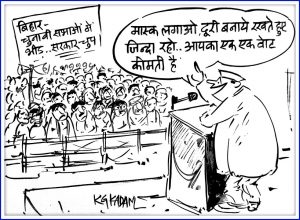 बिहार -
चुनावी सभाओं में
भीड़ - सरकार - चुप!
मास्क लगाओ, दूरी बनाये रखते हुए
ज़िन्दा रहो.. आपका एक एक वोट
कीमती है
KGKADAM